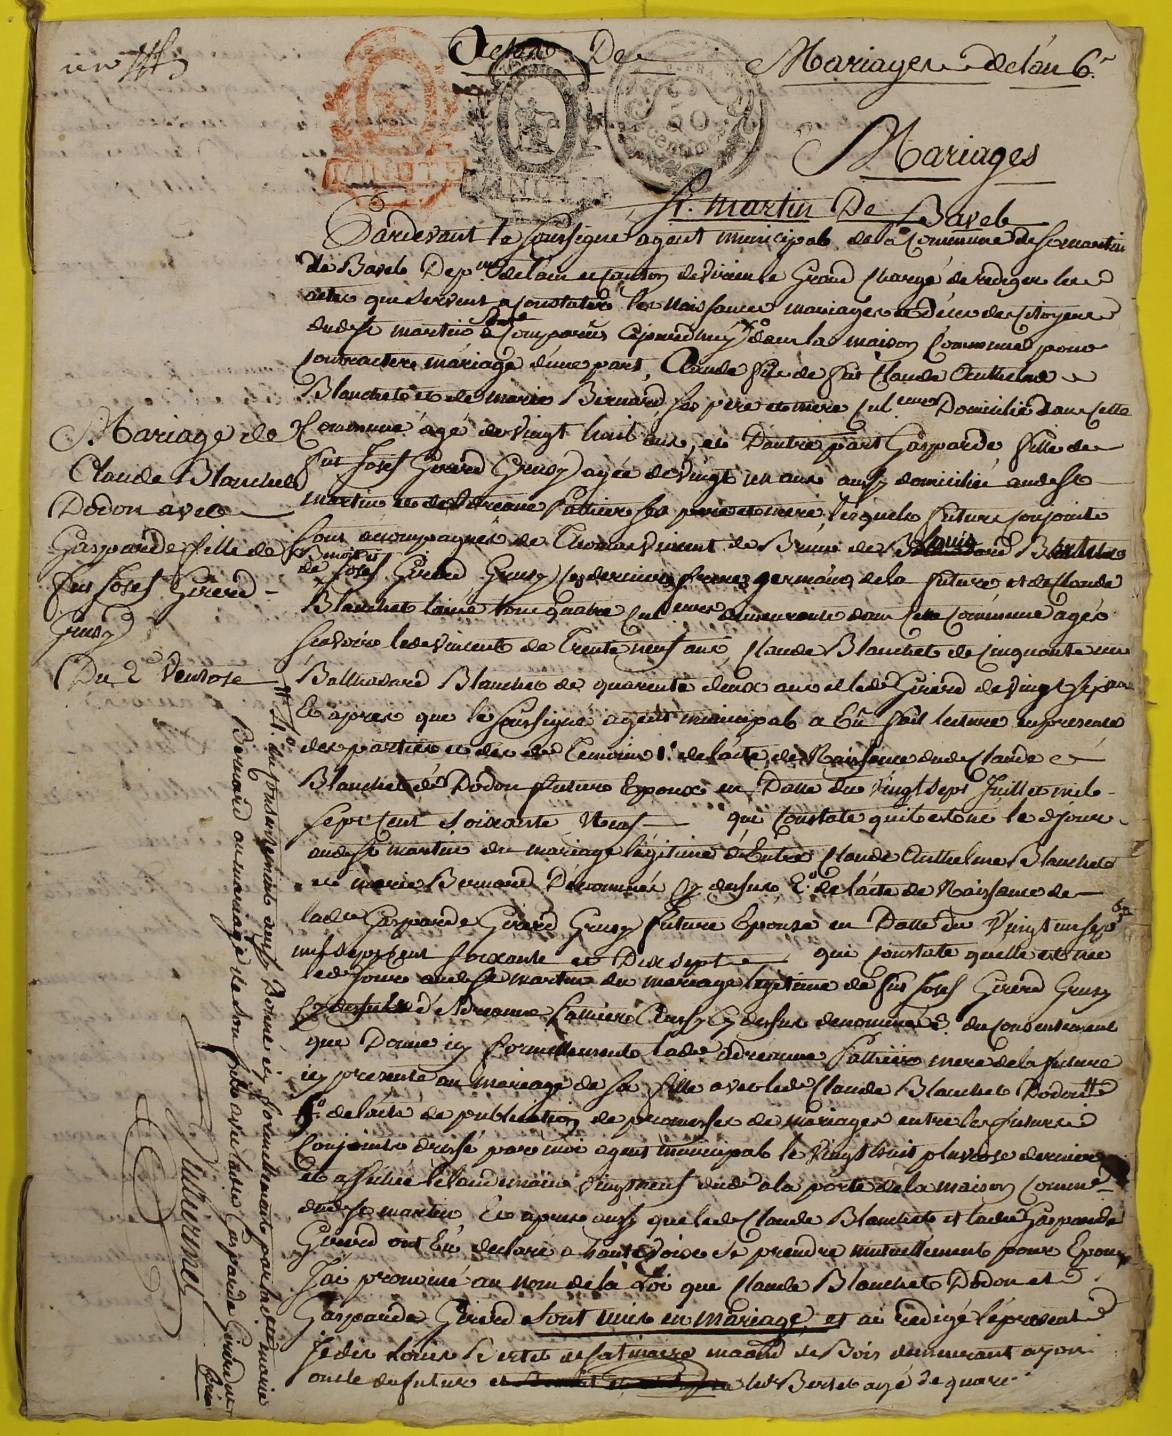 Actes De Mariages de l'an 6.e
MINUTE
MINUTE
50
centimes
Mariages
St. martin De Bavel
Pardevant le soussigné agent municipal de la Commune de St martin
de Bavel Dep.mt de l'ain et canton de virieu le Grand chargé de rediger les
actes qui servent a constater les Naissances mariages et Décès des Citoyens
dud. St martin comparus dans la maison Commune pour
contracter mariage d'une part, Claude fils de fut Claude Anthelme
Blanchet et de marie Bernard ses père et mère cul.teurs Domicilié dans cette
Commune âgé de vingt huit ans, et D'autre part Gasparde fille de
fut Josef Girerd Grusy agée de vingt un ans aussy domiciliée aud. St
martin et de ses père et mère, lesquels futurs conjoints
sont accompagnés de vincent de de Louis Bertet
de Josef Girerd Grusy germain de la future et de Claude
Blanchet l'ainé tous quatre cul.teurs demeurants dans cette Commune agés
sçavoir led. vincent de Trente neuf ans, Claude Blanchet de cinquante un
Balthazard Blanchet de quarente deux ans et led. Girerd de vingt sept ans
Et apres que le soussigné agent municipal a Eü fait lecture en presence
des parties et des d. Temoins 1.o de l'acte de Naissance dud. Claude
Blanchet d. Dodon futur Epoux en Datte du vingt sept Juillet mil
sept Cent soixante Neuf qui constate qu'il est né le d. jour
aud. St martin du mariage légitime d'Entre Claude Anthelme Blanchet
et marie Bernard Denommés cy dessus 2.o de l'acte de Naissance de
lad.e Gasparde Girerd Grusy future Epouse en Datte du Vingt un sep.bre
mil sept Cent soixante et Dix sept qui constate quelle est née
led. Jour aud. St martin du mariage légitime de fut Josef Girerd Grusy
d'Adrianne aussy cy dessus denommés 3.o du consentement
que Donne icy formellement lad.e Adrienne mere de la future
icy presente au mariage de sa fille avec led. Claude Blanchet Dodon
5.o de l'acte de publication de promesses de mariages entre les futurs
Conjoints Dressé par moi agent municipal le Vingt huit pluviose dernier
et affichée le landemain vingt neuf dud. a la porte de la maison Comm.e
dud. St martin Et apres aussy que led. Claude Blanchet et lad.e Gasparde
Girerd ont Eü declaré a haute voix se prendre mutuellement pour Epoux
J'ai prononcé au nom de la Loi que Claude Blanchet Dodon et
Gasparde Girerd sont unis en mariage, et ai redigé le present
Je dis Louis Bertet de marchd de Bois demeurant a
oncle du futur et led. Bertet agé de quare
Mariage de
Claude Blanchet
Dodon avec
Gasparde fille de
fut Josef Girerd
Grusy
Du 2.e Ventose
4.o du consentement aussy Donné icy formellement par lad. marie
Bernard au mariage de son fils avec lad.e Gasparde Girerd